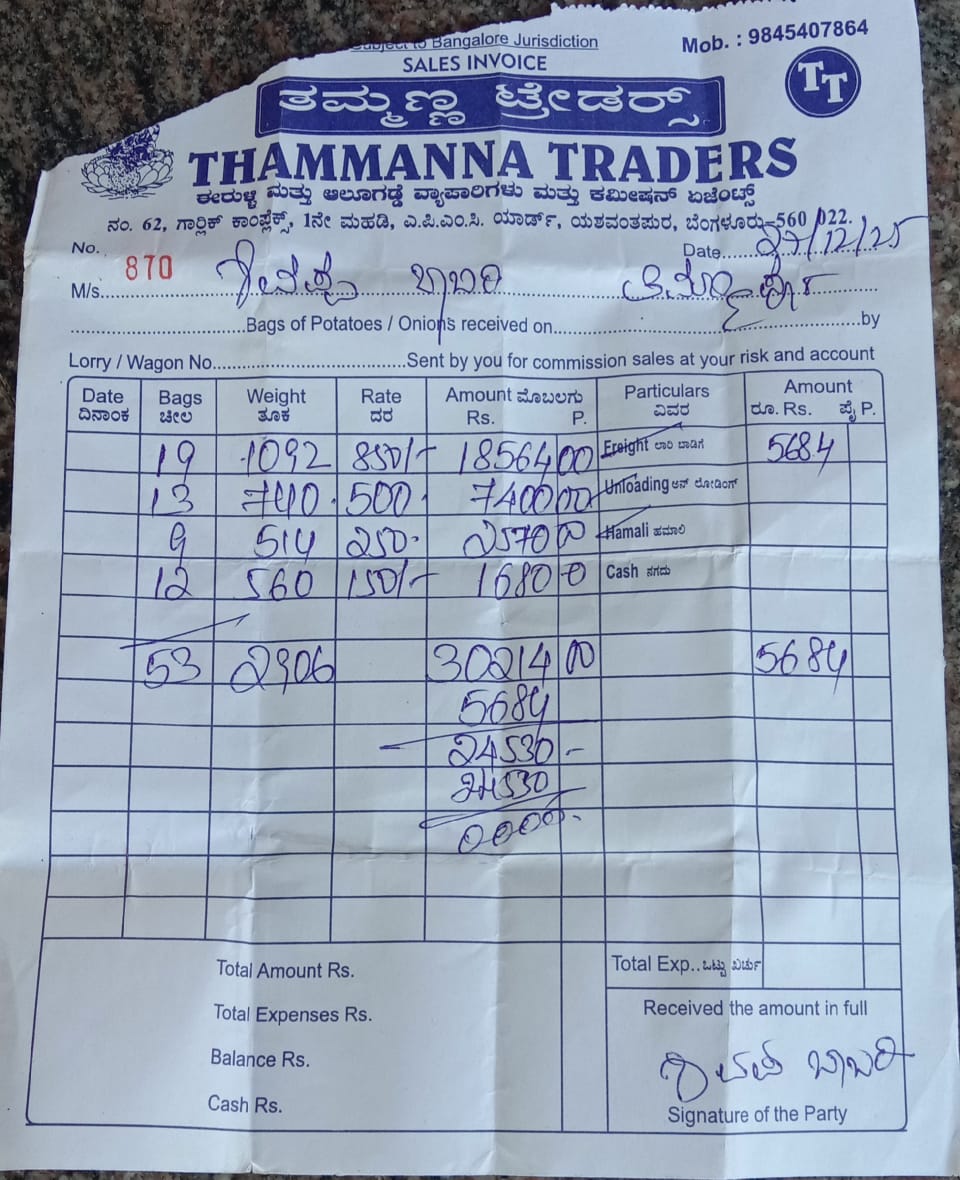 Subject to Bangalore Jurisdiction
Mob. : 9845407864
SALES INVOICE
TT
ತಮ್ಮಣ್ಣ ಟ್ರೇಡರ್ಸ್
THAMMANNA TRADERS
ಈರುಳ್ಳಿ ಮತ್ತು ಆಲೂಗಡ್ಡೆ ವ್ಯಾಪಾರಿಗಳು ಮತ್ತು ಕಮೀಷನ್ ಏಜೆಂಟ್ಸ್
ನಂ. 62, ಗಾರ್ಲಿಕ್ ಕಾಂಪ್ಲೆಕ್ಸ್, 1ನೇ ಮಹಡಿ, ಎ.ಪಿ.ಎಂ.ಸಿ. ಯಾರ್ಡ್, ಯಶವಂತಪುರ, ಬೆಂಗಳೂರು-560 022.
No. 870 Date 27/12/25
M/s.
Bags of Potatoes / Onions received on by
Lorry / Wagon No. Sent by you for commission sales at your risk and account
Date Bags Weight Rate Amount ಮೊಬಲಗು Particulars Amount
ದಿನಾಂಕ ಚೀಲ ತೂಕ ದರ Rs. P. ವಿವರ ರೂ. Rs. ಪೈ P.
19 1092 850/- 18564 00 Freight ಲಾರಿ ಬಾಡಿಗೆ 5684
13 740 500 7400 00 Unloading ಅನ್ ಲೋಡಿಂಗ್
9 514 250 2570 00 Hamali ಹಮಾಲಿ
12 560 150/- 1680 0 Cash ನಗದು
53 2906 30214 00 5684
5684
24530 -
24530
0000
Total Amount Rs. Total Exp.. ಒಟ್ಟು ಖರ್ಚು
Total Expenses Rs. Received the amount in full
Balance Rs.
Cash Rs. Signature of the Party